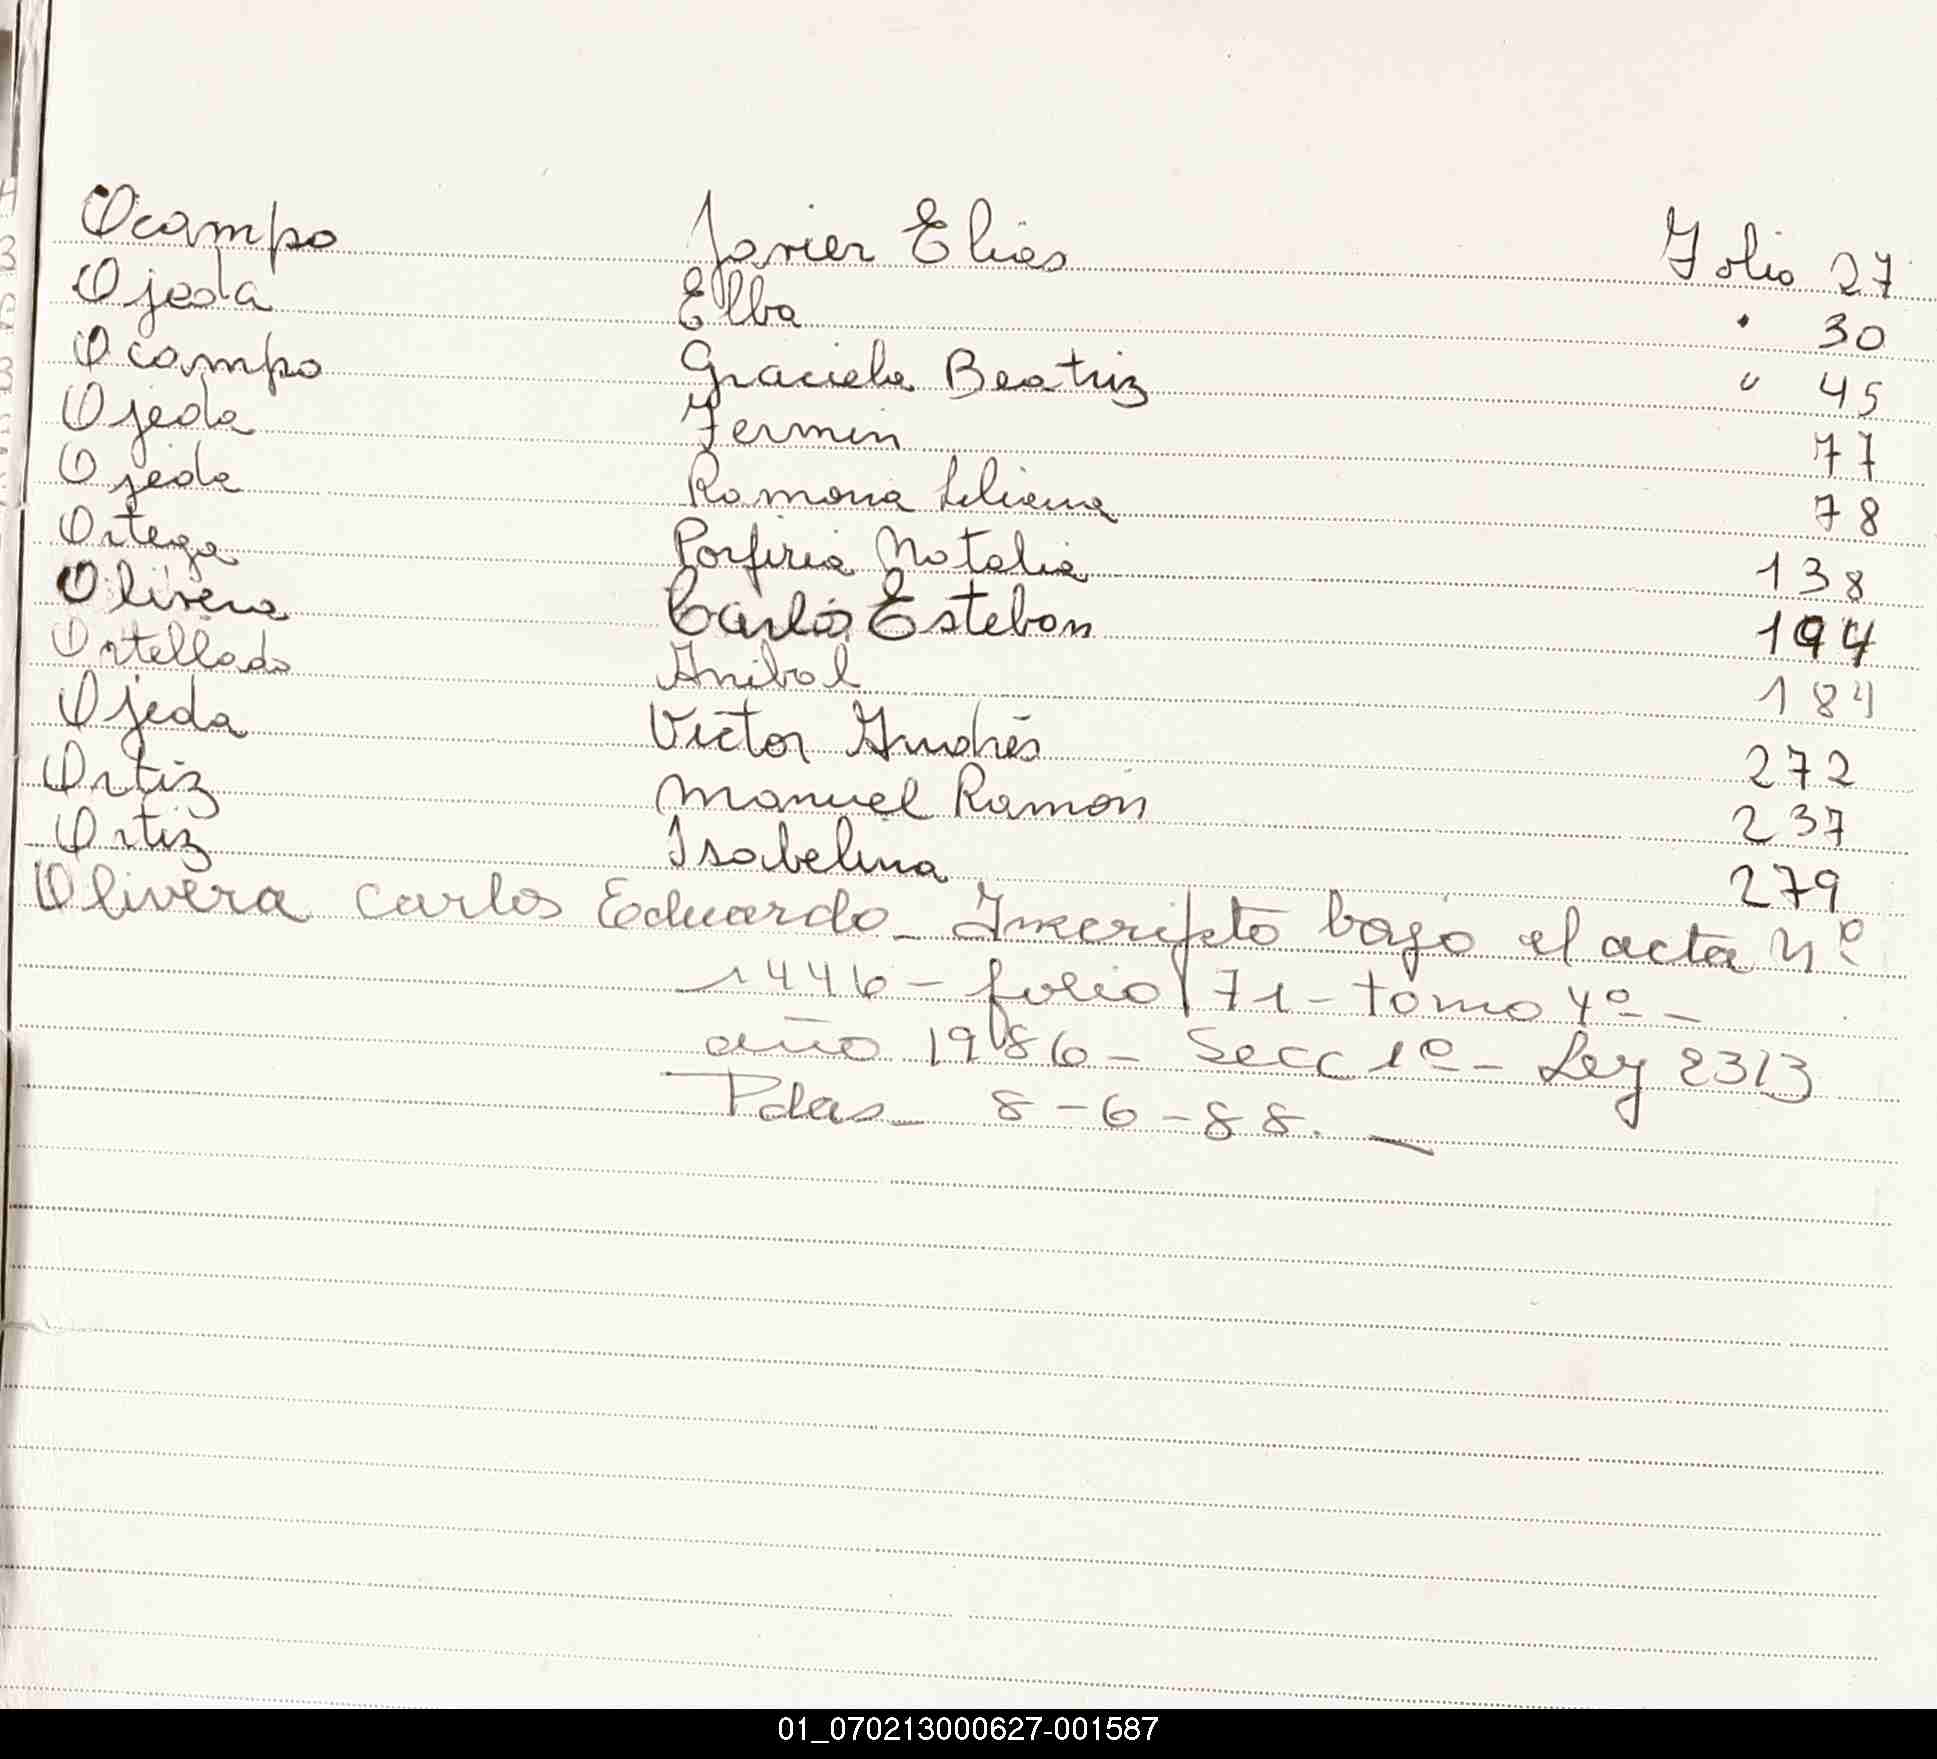 Ocampo Javier Elias Folio 27
Ojeda Elba " 30
Ocampo Graciela Beatriz " 45
Ojeda Fermin 77
Ojeda Ramona Liliana 78
Ortega Porfiria Natalia 138
Olivera Carlos Esteban 194
Ortellado Anibal 184
Ojeda Victor Andrés 272
Ortiz Manuel Ramón 237
Ortiz Isabelina 279
Olivera Carlos Eduardo - Inscripto bajo el acta nº
1446 - folio 71 - tomo 4º -
año 1986 - Secc 1º - Ley 2313
Pdas - 8-6-88. -
01_070213000627-001587